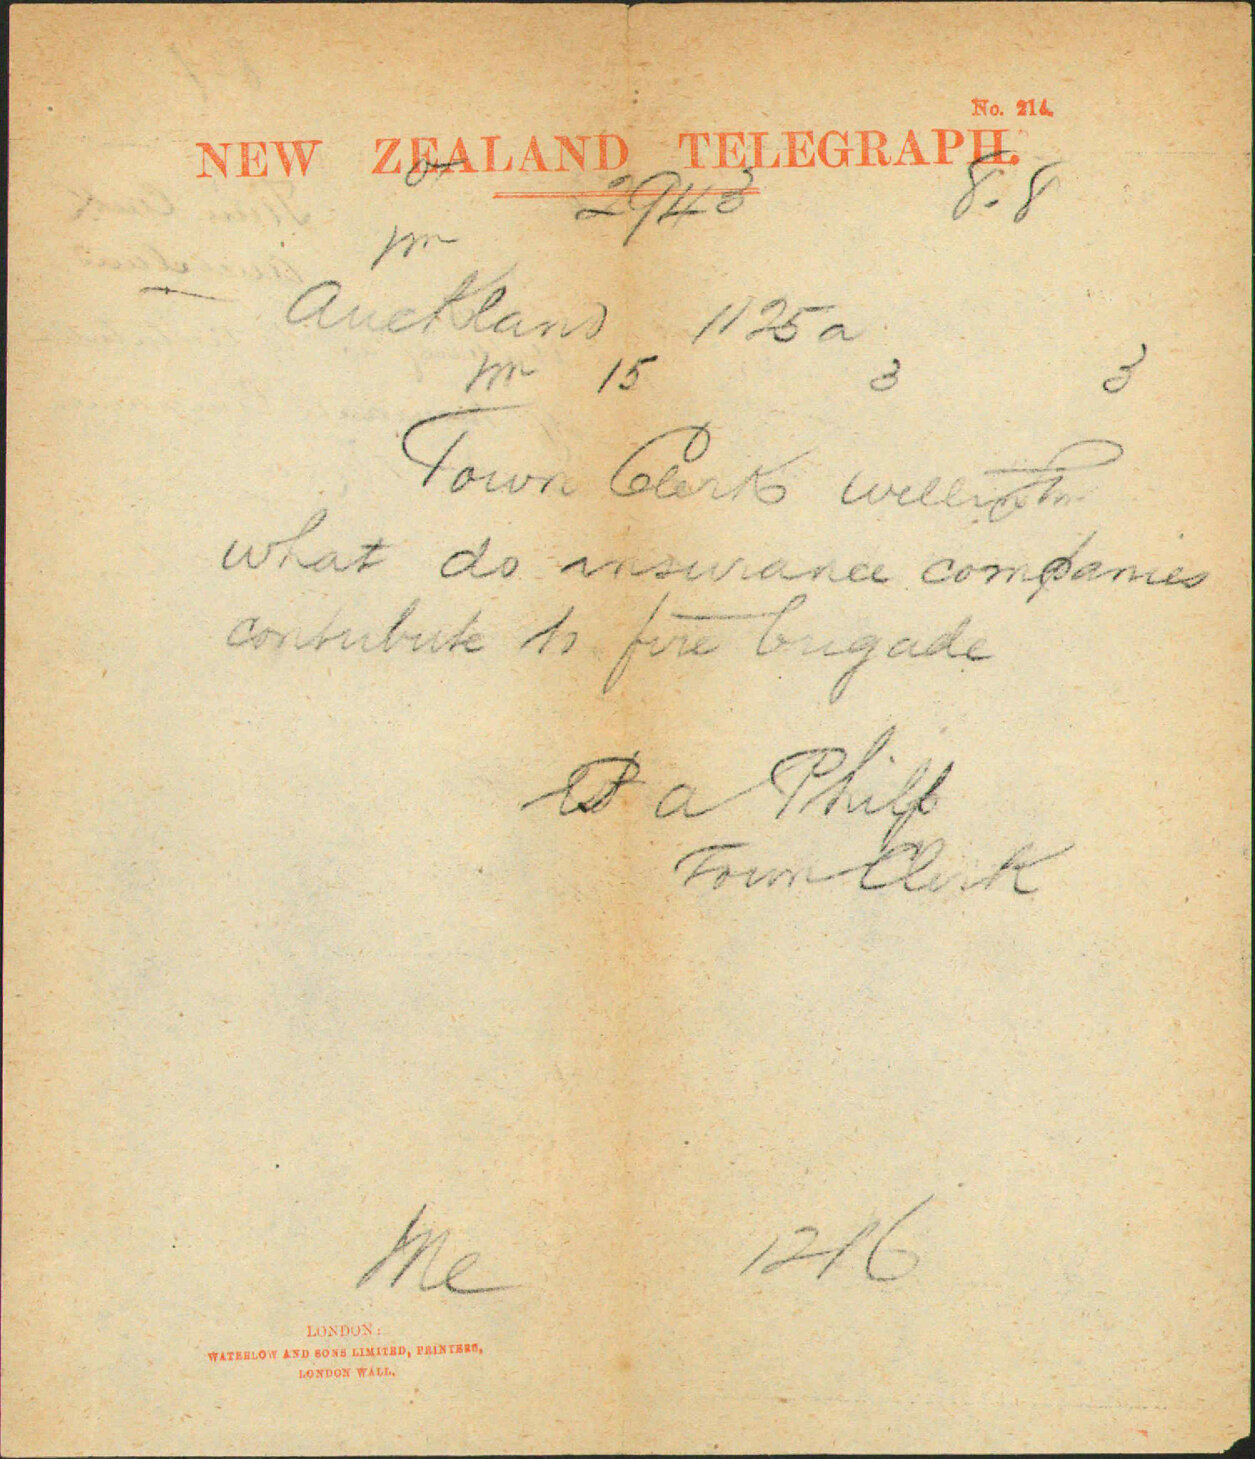 No. 214.
NEW ZEALAND TELEGRAPH.
2943 8.8
Auckland 1125a
15 3 3
Town Clerk Wellington
what do insurance companies
contribute to fire brigade
a Philp
Town Clerk
1216
LONDON:
WATERLOW AND SONS LIMITED, PRINTERS,
LONDON WALL.